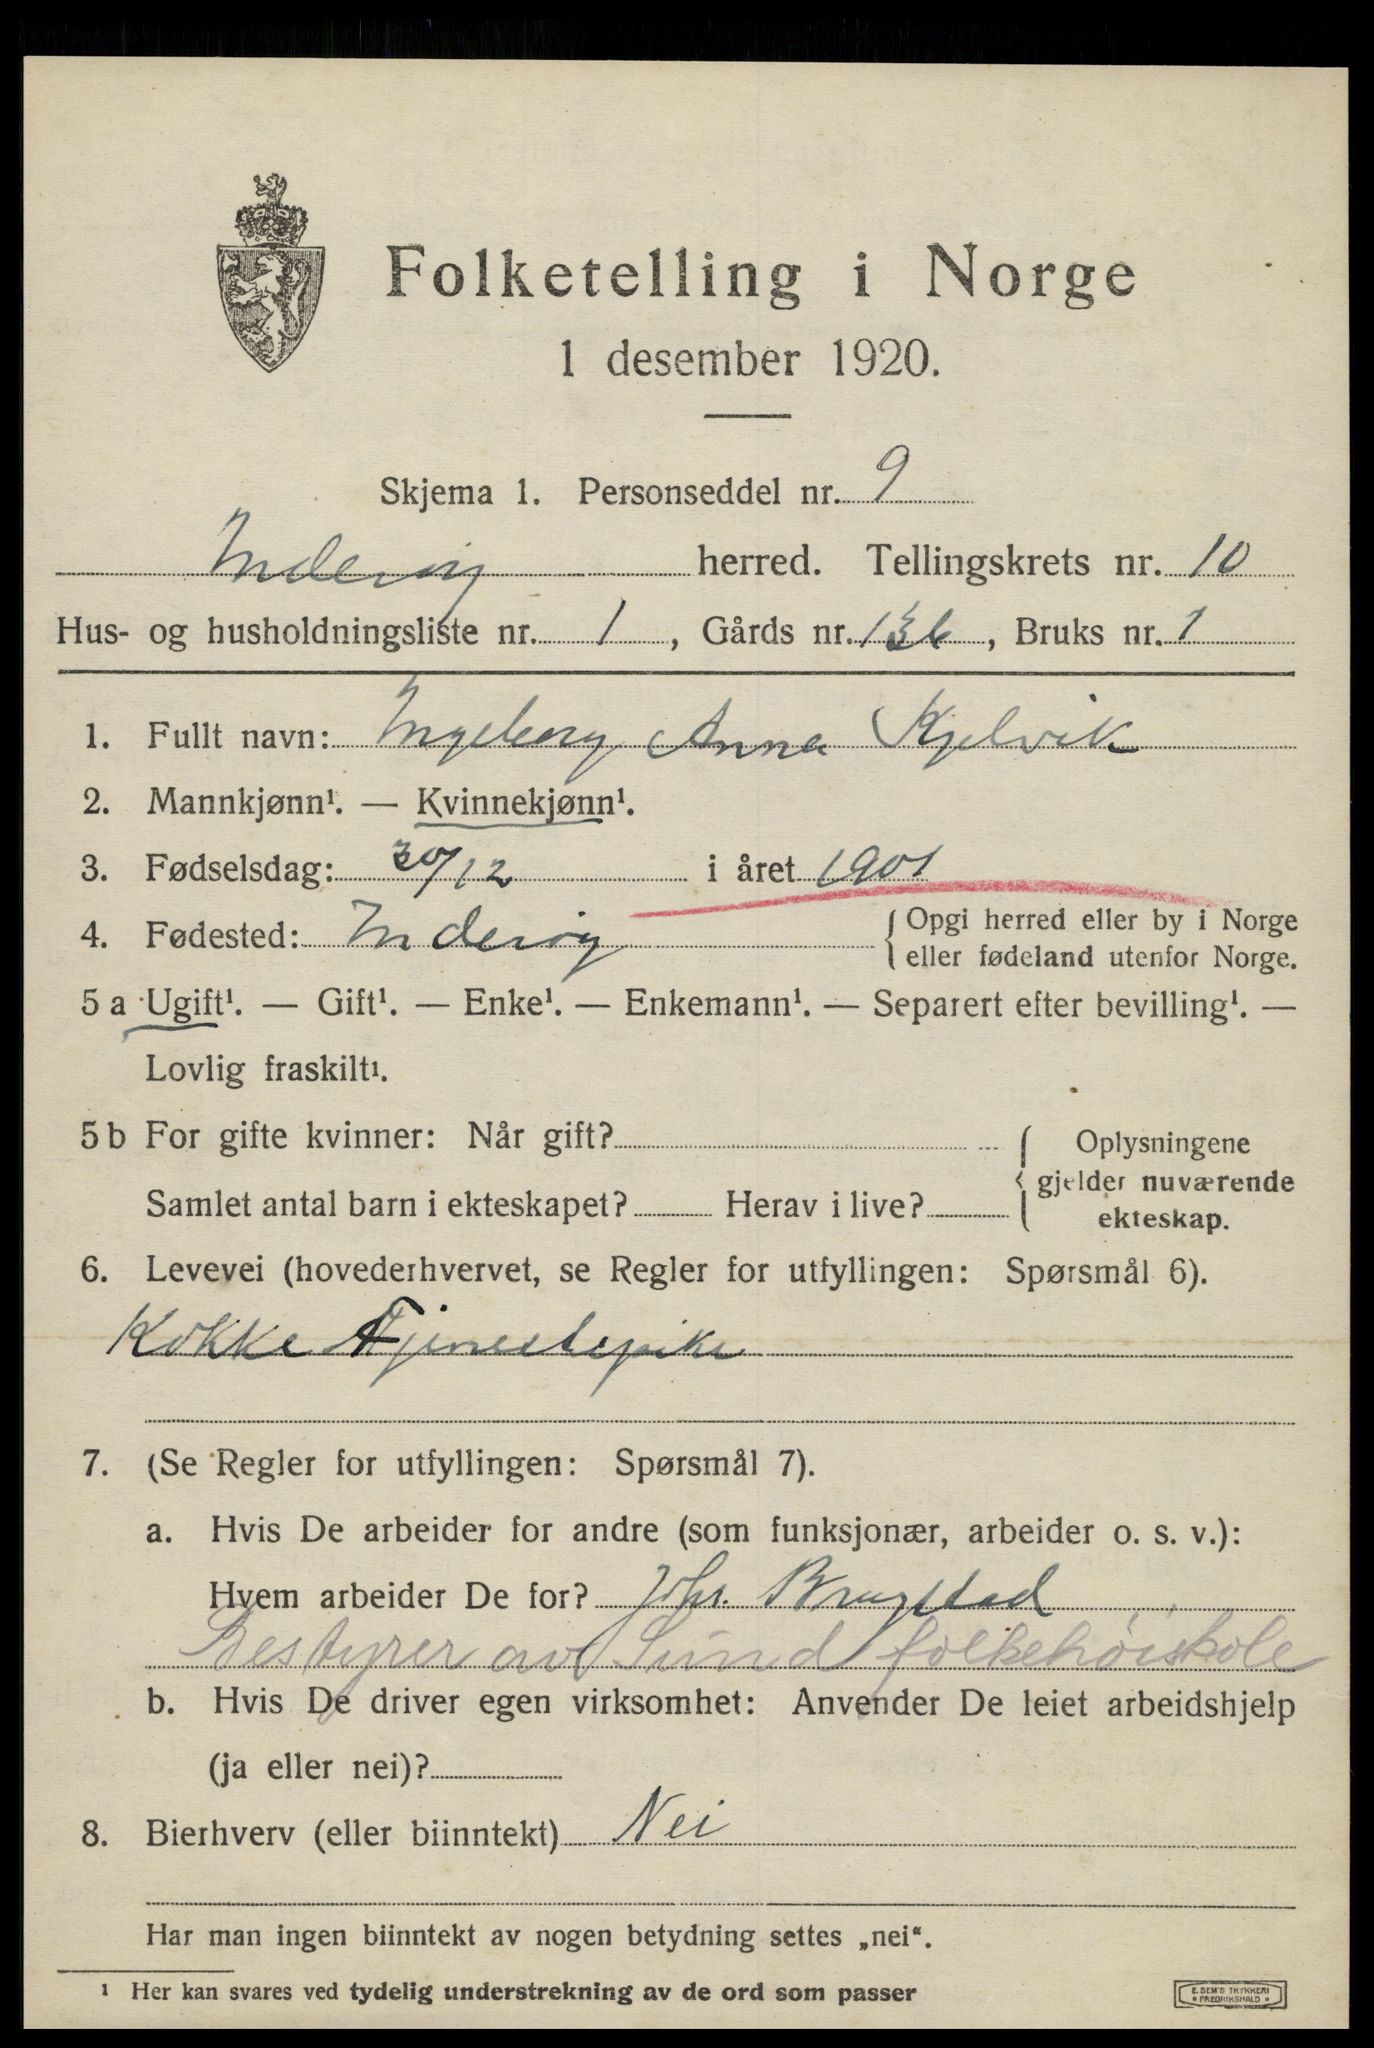 Folketelling i Norge
1 desember 1920.
Skjema 1. Personseddel nr. 9
Inderøy herred. Tellingskrets nr. 10
Hus- og husholdningsliste nr. 1, Gårds nr. 136, Bruks nr. 1
1. Fullt navn: Ingeborg Anna Kjelvik
2. Mannkjønn¹. — Kvinnekjønn¹.
3. Fødselsdag: 20/12 i året 1901
4. Fødested: Inderøy { Opgi herred eller by i Norge
eller fødeland utenfor Norge.
5 a Ugift¹. — Gift¹. — Enke¹. — Enkemann¹. — Separert efter bevilling¹. —
Lovlig fraskilt¹.
5 b For gifte kvinner: Når gift?
Samlet antal barn i ekteskapet? Herav i live?
Oplysningene
gjelder nuværende
ekteskap.
6. Levevei (hovederhvervet, se Regler for utfyllingen: Spørsmål 6).
Kokke Tjenestepike
7. (Se Regler for utfyllingen: Spørsmål 7).
a. Hvis De arbeider for andre (som funksjonær, arbeider o. s. v.):
Hvem arbeider De for? Johs. Brugstad
Bestyrer av Sund folkehøiskole
b. Hvis De driver egen virksomhet: Anvender De leiet arbeidshjelp
(ja eller nei)?
8. Bierhverv (eller biinntekt) Nei
Har man ingen biinntekt av nogen betydning settes „nei“.
¹ Her kan svares ved tydelig understrekning av de ord som passer
E. SEM'S TRYKKERI
FREDRIKSHALD